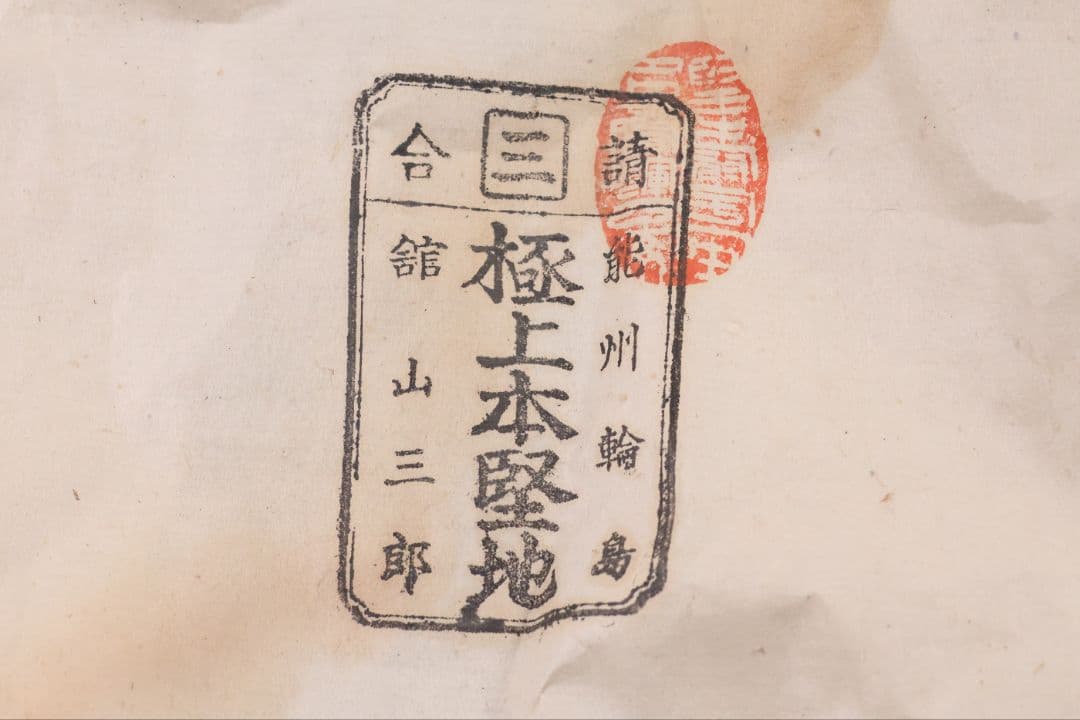 請 三 合
能州輪島
極上本堅地
舘山三郎